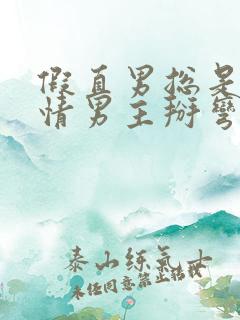 假直男总是
情男主掰彎
泰山练氣士
未经同意禁止转载